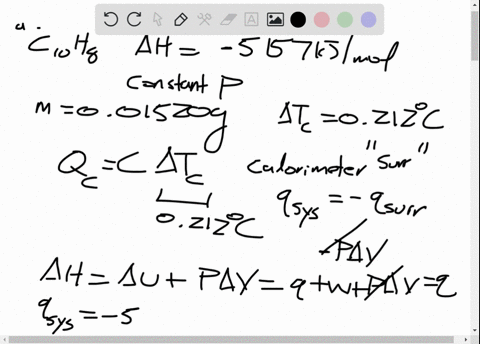 a.
C₁₀H₈ ΔH = -5157kJ/mol
constant P
m = 0.01520g ΔT_c = 0.212°C
Q_c = C ΔT_c calorimeter "surr"
0.212°C q_sys = -q_surr
-PΔV
ΔH = ΔU + PΔV = q + w + PΔV = q
q_sys = -5